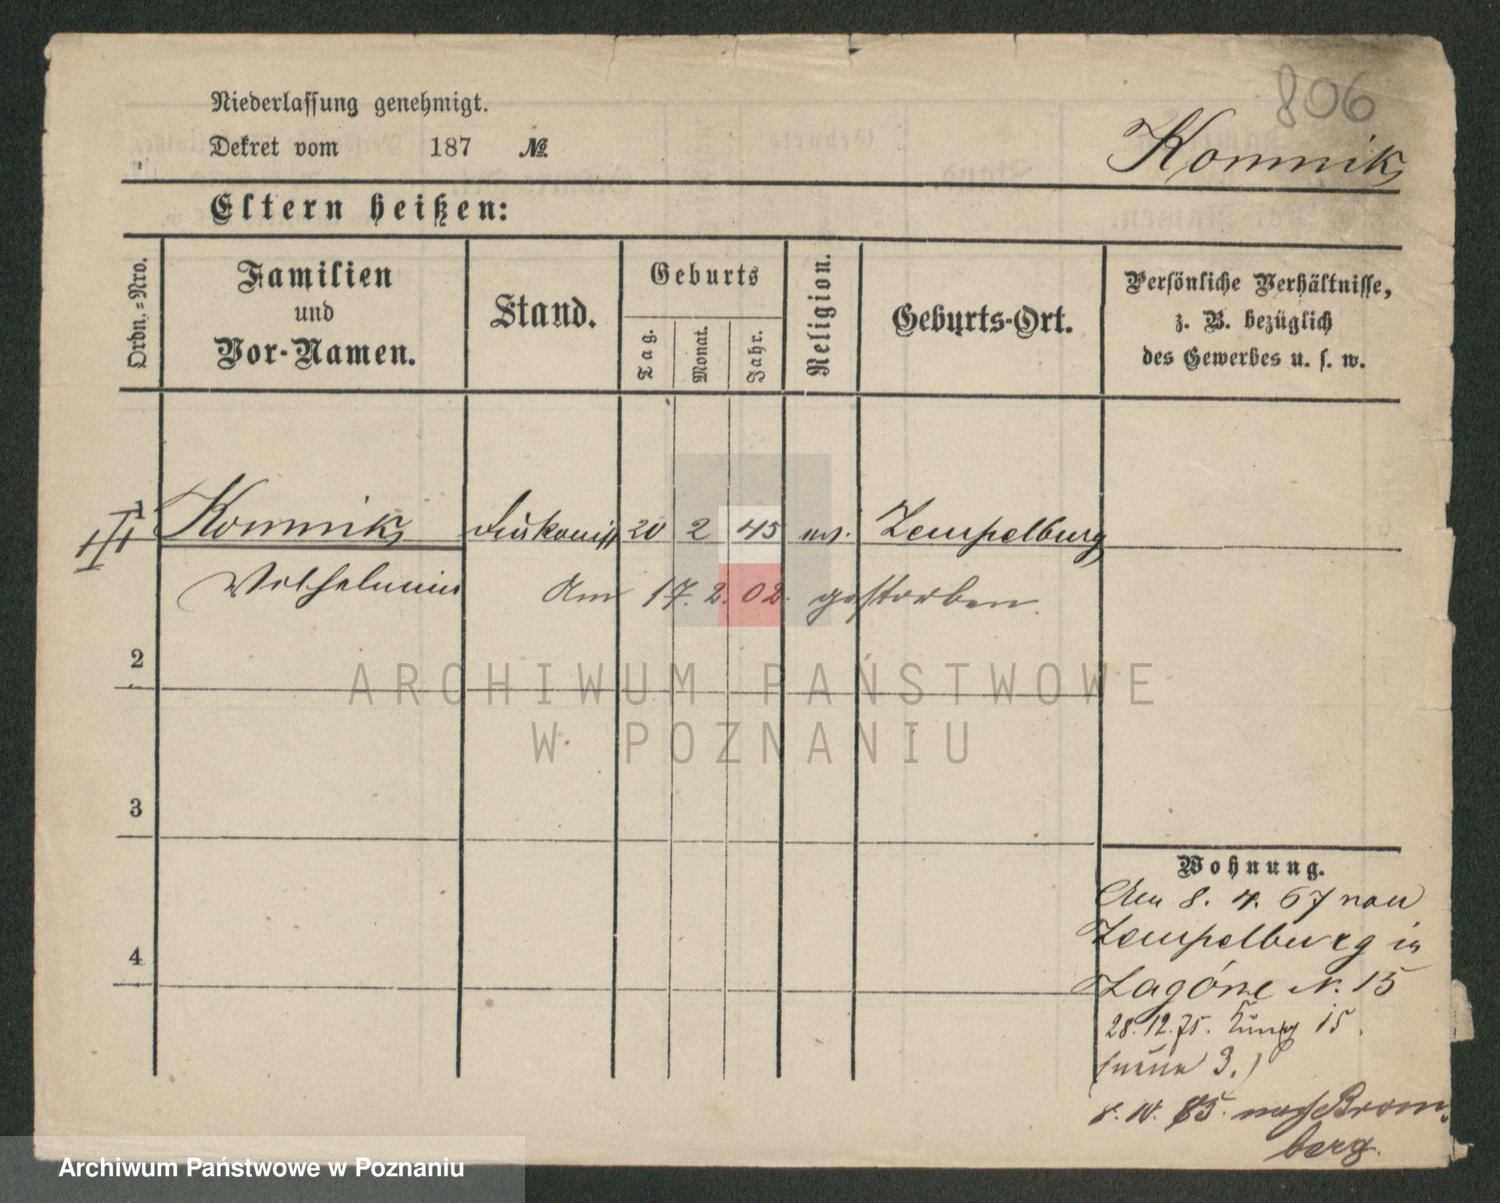 806
Niederlassung genehmigt.
Dekret vom 187 №
Komnik
Eltern heißen:
Ordn.-Nro.
Familien
und
Vor-Namen.
Stand.
Geburts
Tag.
Monat.
Jahr.
Religion.
Geburts-Ort.
Persönliche Verhältnisse,
z. B. bezüglich
des Gewerbes u. s. w.
1 Komnik Diakoniss 20 2 45 ev. Zempelburg
Wilhelmine Am 17. 2. 02. gestorben.
2
ARCHIWUM PAŃSTWOWE
W POZNANIU
3
Wohnung.
Am 8. 4. 67 von
Zempelburg in
Zagórze N. 15
4
28. 12. 75. 15.
(neue 3.)
85. nach Brom-
berg.
Archiwum Państwowe w Poznaniu